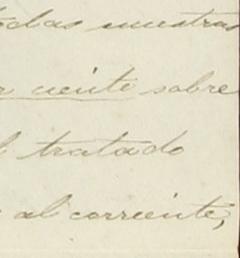 todas nuestras
r ciento sobre
l tratado
al corriente,